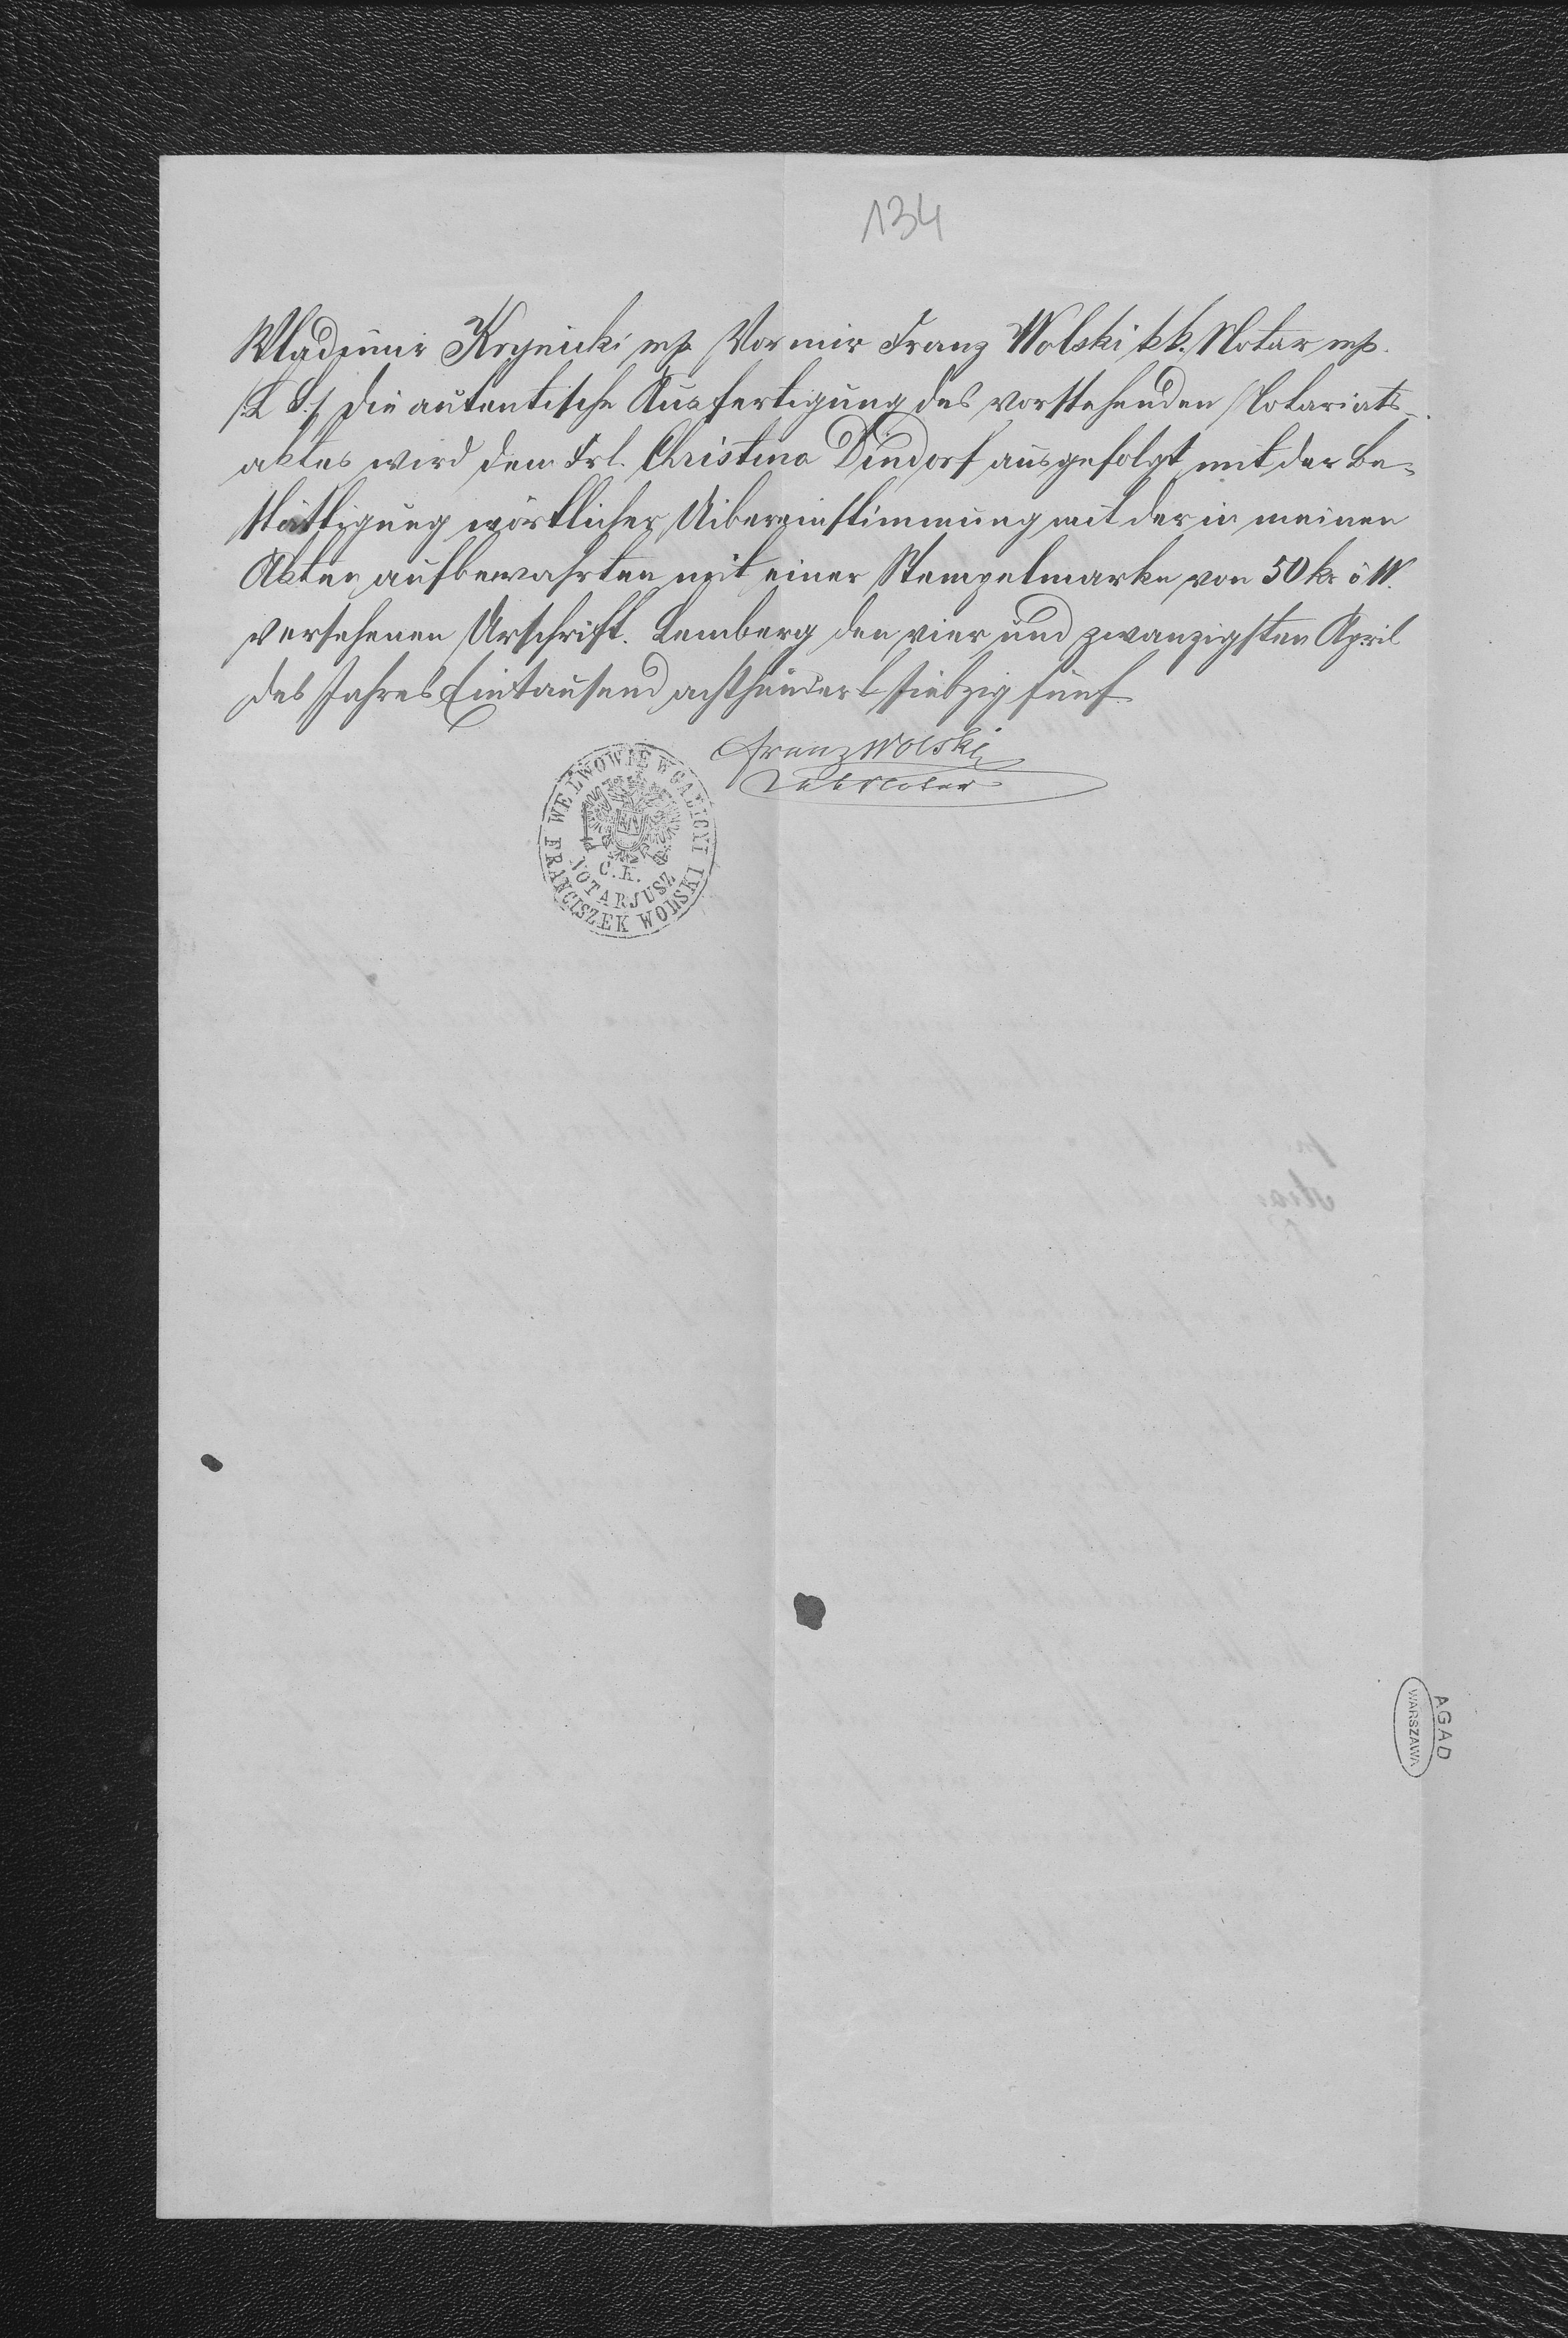 134
Wladimir Krynicki mp. Vor mir Franz Wolski kk. Notar mp.
/:L. S.:/ Die autentische Ausfertigung des vorstehenden Notariats-
aktes wird dem Frl. Christina Dindorf ausgefolgt mit der Be-
stättigung wörtlicher Uibereinstimmung mit der in meinen
Akten aufbewahrten mit einer Stempelmarke von 50 kr ö W.
versehenen Urschrift. Lemberg den vier und zwanzigsten April
des Jahres Eintausend achthundert siebzig fünf.
Franz Wolski
k k Notar
WE LWOWIE W GALICYI
C. K.
NOTARJUSZ
FRANCISZEK WOLSKI
AGAD
WARSZAWA